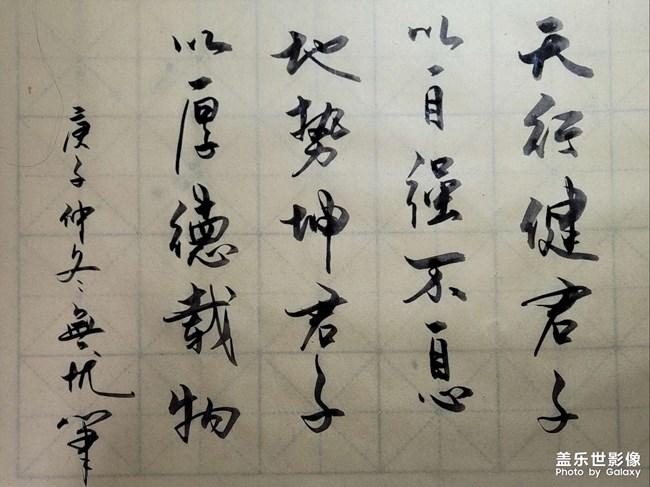 天行健君子
以自强不息
地势坤君子
以厚德载物
庚子仲冬無忧筆
盖乐世影像
Photo by Galaxy